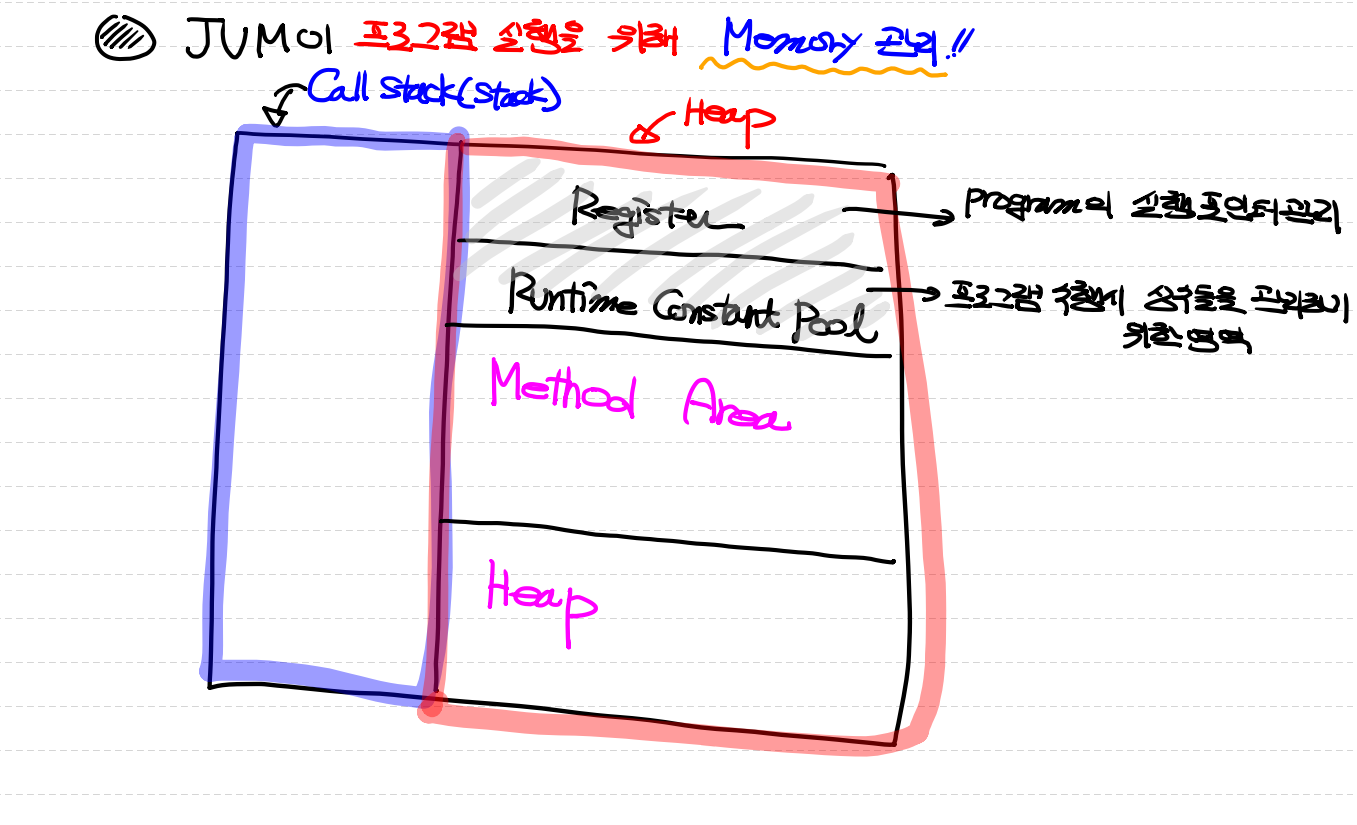 JVM이 프로그램 실행을 위해 Memory 관리!!
Call Stack(Stack)
Heap
Register
Program의 실행포인터관리
Runtime Constant Pool
프로그램 수행시 상수들을 관리하기
위한영역
Method Area
Heap